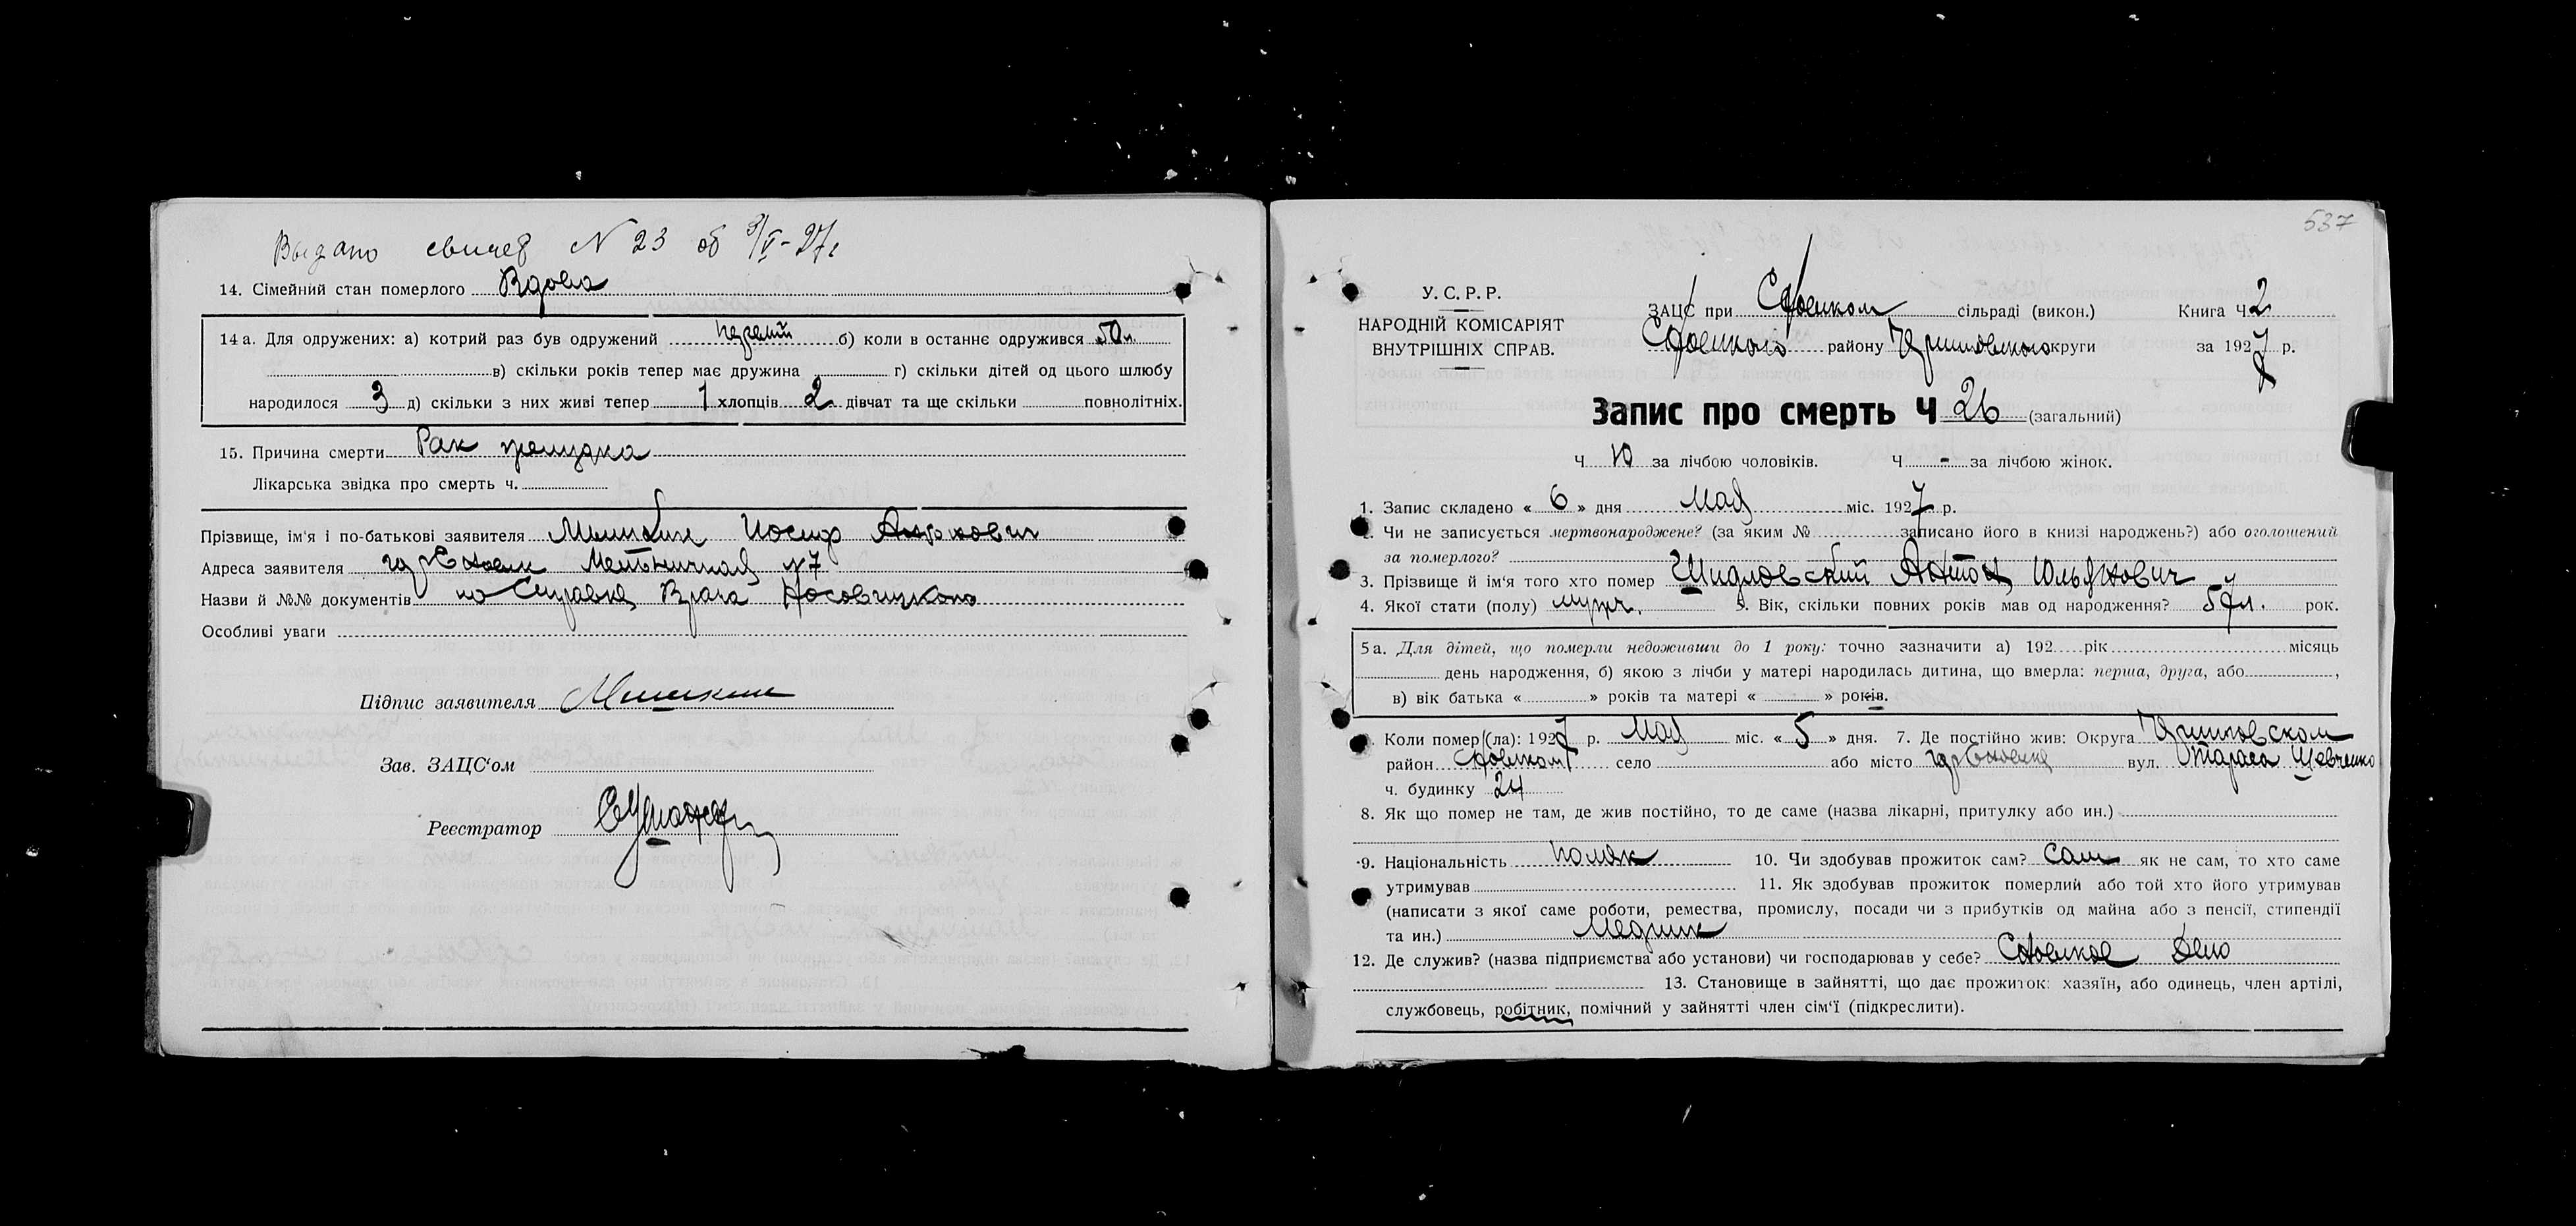 Выдано свидет N 23 об 9/V-27г
14. Сімейний стан померлого Вдова
14 а. Для одружених: а) котрий раз був одружений первый б) коли в останнє одружився 50 л.
в) скільки років тепер має дружина г) скільки дітей од цього шлюбу
народилося 3 д) скільки з них живі тепер 1 хлопців 2 дівчат та ще скільки повнолітніх.
15. Причина смерти Рак желудка
Лікарська звідка про смерть ч.
Прізвище, ім'я і по-батькові заявителя Иосиф
Адреса заявителя гор Мельничная № 7
Назви й №№ документів по Справке Врача Носовицкого
Особливі уваги
Підпис заявителя
Зав. ЗАЦС'ом
Реєстратор
537
У. С. Р. Р.
НАРОДНІЙ КОМІСАРІЯТ
ВНУТРІШНІХ СПРАВ.
ЗАЦС при Сновском сільраді (викон.) Книга Ч 2
Сновского району округи за 1927 р.
Запис про смерть Ч 26 (загальний)
Ч 10 за лічбою чоловіків. Ч - за лічбою жінок.
1. Запис складено « 6 » дня Мая міс. 1927 р.
Чи не записується мертвонароджене? (за яким № записано його в книзі народжень?) або оголошений
за померлого?
3. Прізвище й ім'я того хто помер Шидловский Антон
4. Якої стати (полу) мужч. 5. Вік, скільки повних років мав од народження? 57 л. рок.
5 а. Для дітей, що померли недоживши до 1 року: точно зазначити а) 192 рік місяць
день народження, б) якою з лічби у матері народилась дитина, що вмерла: перша, друга, або ,
в) вік батька « » років та матері « » років.
Коли помер (ла): 1927 р. Мая міс. « 5 » дня. 7. Де постійно жив: Округа
район Сновском село або місто гор Сновске вул. Тараса Шевченко
ч. будинку 24
8. Як що помер не там, де жив постійно, то де саме (назва лікарні, притулку або ин.)
9. Національність поляк 10. Чи здобував прожиток сам? Сам як не сам, то хто саме
утримував 11. Як здобував прожиток померлий або той хто його утримував
(написати з якої саме роботи, ремества, промислу, посади чи з прибутків од майна або з пенсії, стипендії
та ин.) Медник
12. Де служив? (назва підприємства або установи) чи господарював у себе? Сновское Депо
13. Становище в зайнятті, що дає прожиток: хазяїн, або одинець, член артілі,
службовець, робітник, помічний у зайнятті член сім'ї (підкреслити).